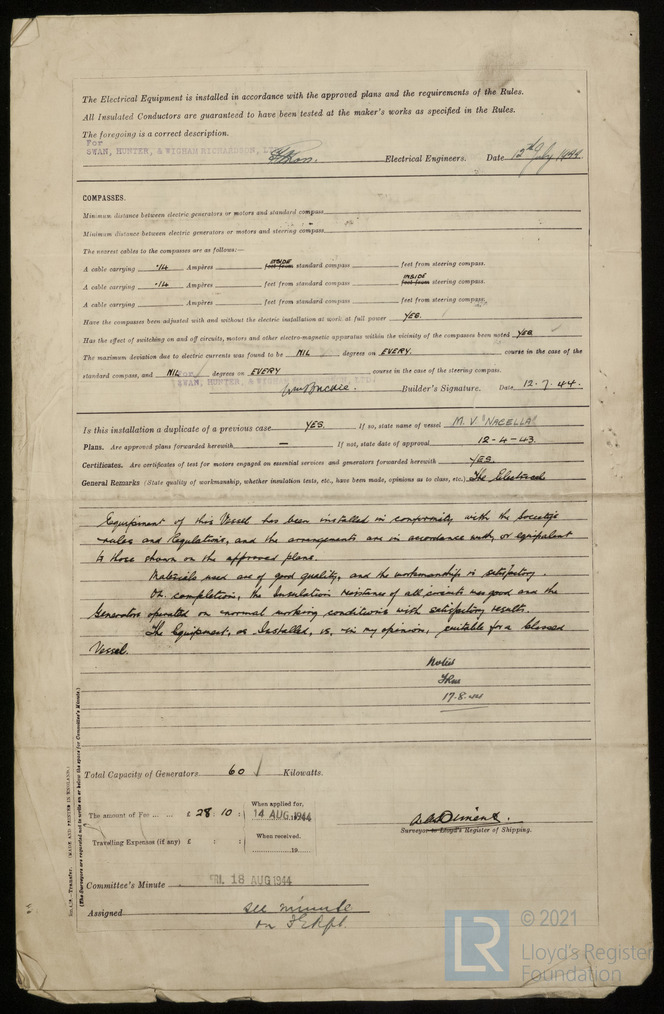 The Electrical Equipment is installed in accordance with the approved plans and the requirements of the Rules.
All Insulated Conductors are guaranteed to have been tested at the maker's works as specified in the Rules.
The foregoing is a correct description.
For
SWAN, HUNTER, & WIGHAM RICHARDSON, LTD. Electrical Engineers. Date 12th July 1944
COMPASSES.
Minimum distance between electric generators or motors and standard compass
Minimum distance between electric generators or motors and steering compass
The nearest cables to the compasses are as follows:—
A cable carrying ·14 Ampères INSIDE feet from standard compass feet from steering compass.
A cable carrying ·14 Ampères feet from standard compass INSIDE feet from steering compass.
A cable carrying Ampères feet from standard compass feet from steering compass.
Have the compasses been adjusted with and without the electric installation at work at full power YES.
Has the effect of switching on and off circuits, motors and other electro-magnetic apparatus within the vicinity of the compasses been noted YES
The maximum deviation due to electric currents was found to be NIL degrees on EVERY. course in the case of the
standard compass, and NIL degrees on EVERY course in the case of the steering compass.
For
SWAN, HUNTER, & WIGHAM RICHARDSON, LTD.
Builder's Signature. Date 12.7.44.
Is this installation a duplicate of a previous case YES. If so, state name of vessel M.V. "NACELLA"
Plans. Are approved plans forwarded herewith — If not, state date of approval 12-4-43.
Certificates. Are certificates of test for motors engaged on essential services and generators forwarded herewith YES.
General Remarks (State quality of workmanship, whether insulation tests, etc., have been made, opinions as to class, etc.) The Electrical
Equipment of this Vessel has been installed in conformity with the Society's
rules and Regulations, and the arrangements are in accordance with, or equivalent
to those shown on the approved plans.
Materials used are of good quality, and the workmanship is satisfactory.
On completion, the Insulation resistance of all circuits was good and the
Generators operated on normal working conditions with satisfactory results.
The Equipment, as Installed, is, in my opinion, suitable for a Classed
Vessel.
Noted
17.8.44
Total Capacity of Generators 60 Kilowatts.
The amount of Fee ... ... £ 28 : 10 : When applied for, 14 AUG 1944
Travelling Expenses (if any) £ : : When received, 19
Surveyor to Lloyd's Register of Shipping.
Committee's Minute FRI. 18 AUG 1944
Assigned see minute
on
Transfer. (MADE AND PRINTED IN ENGLAND.)
(The Surveyors are requested not to write on or below the space for Committee's Minute.)
LR
© 2021
Lloyd's Register
Foundation